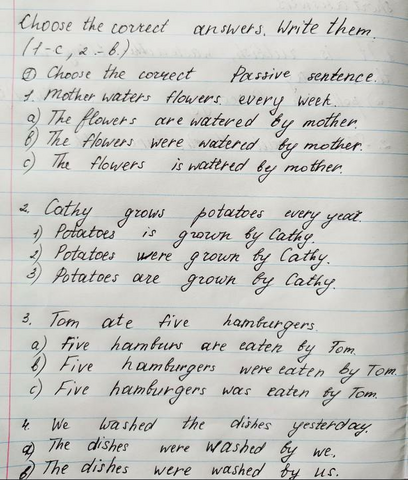 Choose the correct answers. Write them.
(1-c, 2-b.)
① Choose the correct Passive sentence.
1. Mother waters flowers every week.
a) The flowers are watered by mother.
b) The flowers were watered by mother.
c) The flowers is watered by mother.
2. Cathy grows potatoes every year.
1) Potatoes is grown by Cathy.
2) Potatoes were grown by Cathy.
3) Potatoes are grown by Cathy.
3. Tom ate five hamburgers.
a) Five hamburs are eaten by Tom.
b) Five hamburgers were eaten by Tom.
c) Five hamburgers was eaten by Tom.
4. We washed the dishes yesterday.
a) The dishes were washed by we.
b) The dishes were washed by us.